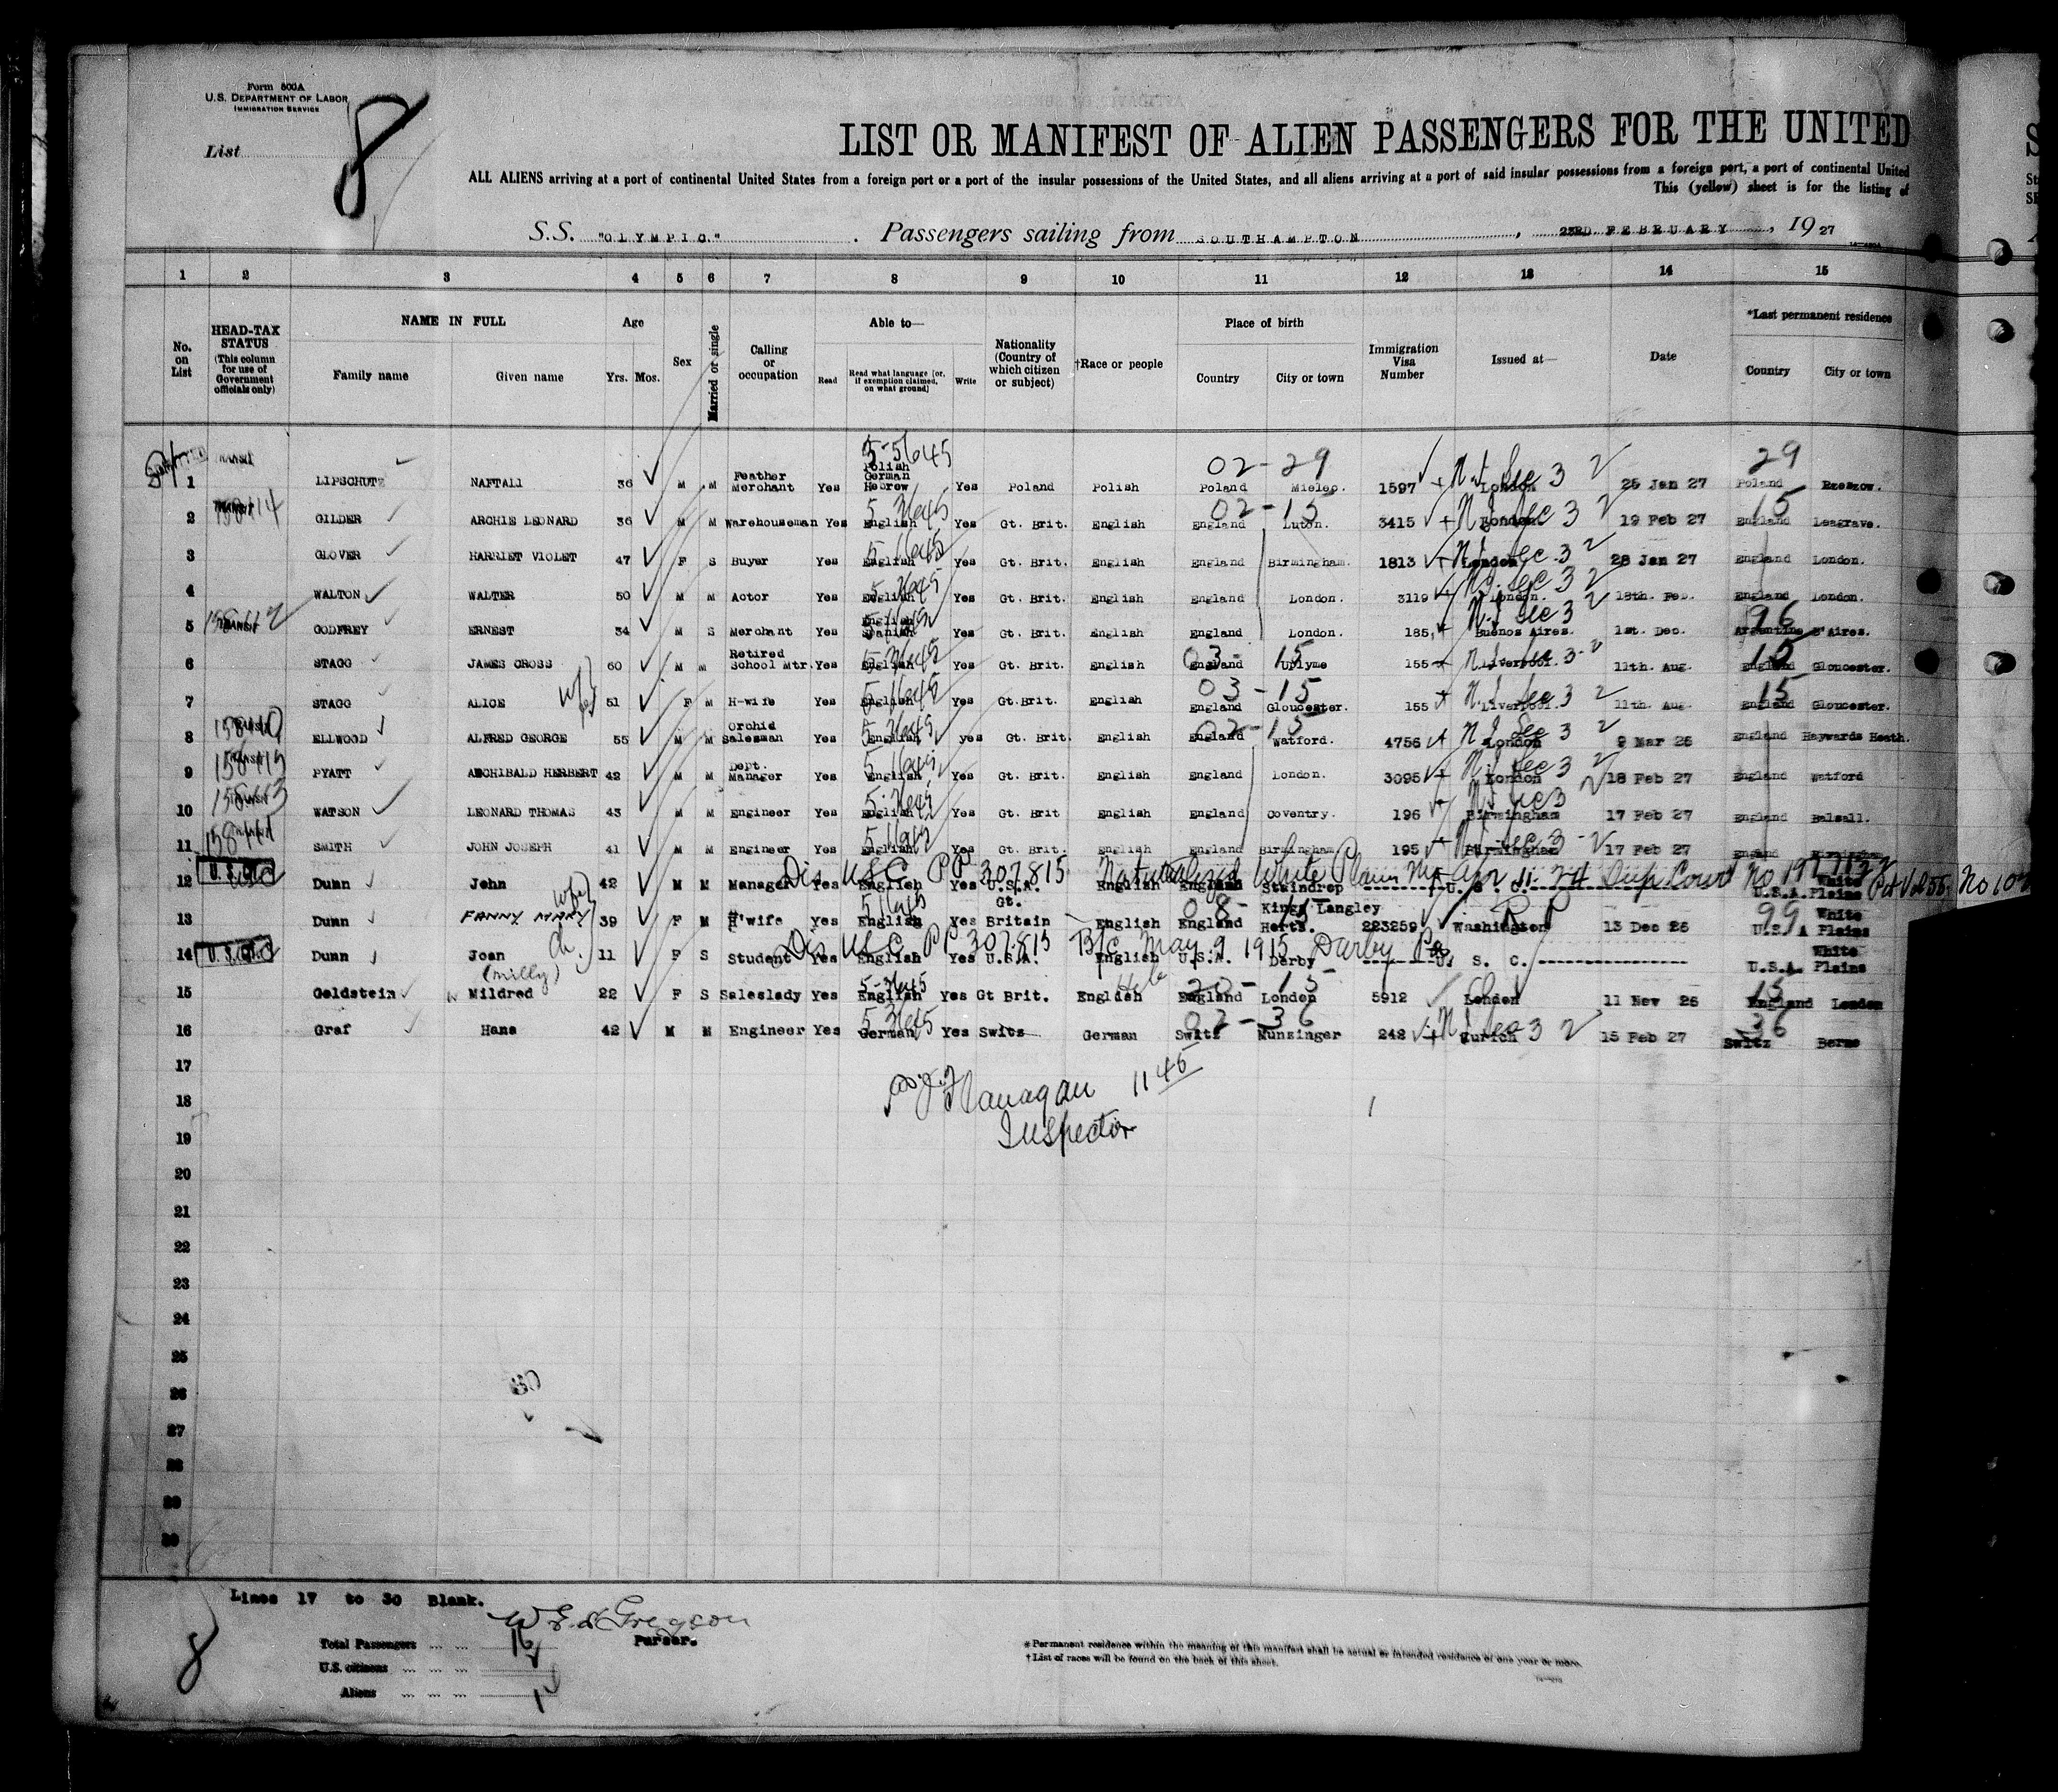 Form 500A
U.S. DEPARTMENT OF LABOR
IMMIGRATION SERVICE
List 8
LIST OR MANIFEST OF ALIEN PASSENGERS FOR THE UNITED
ALL ALIENS arriving at a port of continental United States from a foreign port or a port of the insular possessions of the United States, and all aliens arriving at a port of said insular possessions from a foreign port, a port of continental United
This (yellow) sheet is for the listing of
S.S. "OLYMPIC" . Passengers sailing from SOUTHAMPTON , 23RD FEBRUARY , 19 27
1 2 3 4 5 6 7 8 9 10 11 12 13 14 15
No. on List
HEAD-TAX STATUS (This column for use of Government officials only)
NAME IN FULL
Family name Given name
Age
Yrs. Mos.
Sex
Married or single
Calling or occupation
Able to—
Read
Read what language [or, if exemption claimed, on what ground]
Write
Nationality (Country of which citizen or subject)
†Race or people
Place of birth
Country City or town
Immigration Visa Number
Issued at—
Date
*Last permanent residence
Country City or town
1 LIPSCHUTZ NAFTALI 36 M M Feather Merchant Yes Polish German Hebrew Yes Poland Polish Poland Mielec. 1597 London 25 Jan 27 Poland Rzeszow.
2 GILDER ARCHIE LEONARD 36 M M Warehouseman Yes English Yes Gt. Brit. English England Luton. 3415 London 19 Feb 27 England Leagrave.
3 GLOVER HARRIET VIOLET 47 F S Buyer Yes English Yes Gt. Brit. English England Birmingham. 1813 London 28 Jan 27 England London.
4 WALTON WALTER 50 M M Actor Yes English Yes Gt. Brit. English England London. 3119 London. 18th. Feb. England London.
5 GODFREY ERNEST 34 M S Merchant Yes English Spanish Yes Gt. Brit. English England London. 185 Buenos Aires. 1st. Dec. Argentine B'Aires.
6 STAGG JAMES CROSS 60 M M Retired School Mtr. Yes English Yes Gt. Brit. English England Uplyme 155 Liverpool. 11th. Aug. England Gloucester.
7 STAGG ALICE 51 F M H-wife Yes English Yes Gt.Brit. English England Gloucester. 155 Liverpool. 11th. Aug. England Gloucester.
8 ELLWOOD ALFRED GEORGE 55 M M Orchid Salesman Yes English yes Gt. Brit. English England Watford. 4756 London 9 Mar 26 England Haywards Heath.
9 PYATT ARCHIBALD HERBERT 42 M M Dept. Manager Yes English Yes Gt. Brit. English England London. 3095 London 18 Feb 27 England Watford
10 WATSON LEONARD THOMAS 43 M M Engineer Yes English Yes Gt. Brit English England Coventry. 196 Birmingham 17 Feb 27 England Balsall.
11 SMITH JOHN JOSEPH 41 M M Engineer Yes English Yes Gt. Brit. English England Birmingham 195 Birmingham 17 Feb 27 England Birmingham
Dis USC PP 307815 Naturalized White Plains NY Apr 11-24 Sup Court
12 Dunn John 42 M M Manager Yes English Yes U.S.A. English England Staindrop U. S. C. U.S.A. White Plains
13 Dunn FANNY MARY wife 39 F M H'wife Yes English Yes Gt. Britain English England Kings Langley Herts. 223259 Washington 13 Dec 26 U.S.A White Plains
Dis USC PP 307815 B/C May 9 1915 Darby Pa
14 Dunn Joan 11 F S Student Yes English Yes U.S.A. English U.S.A. Darby U. S. C. U.S.A. White Plains
(Milly)
15 Goldstein Mildred 22 F S Saleslady Yes English Yes Gt Brit. English England London 5912 London 11 Nov 26 England London
16 Graf Hans 42 M M Engineer Yes German Yes Switz German Switz Munzinger 242 Zurich 15 Feb 27 Switz Berne
17
18
19
20
21
22
23
24
25
26
27
28
29
30
Flanagan 11 45
Inspector
Lines 17 to 30 Blank.
Gregson
Purser.
Total Passengers ... ... 16
U.S. citizens ... ... ...
Aliens ... ... ...
8
* Permanent residence within the meaning of this manifest shall be actual or intended residence of one year or more.
† List of races will be found on the back of this sheet.